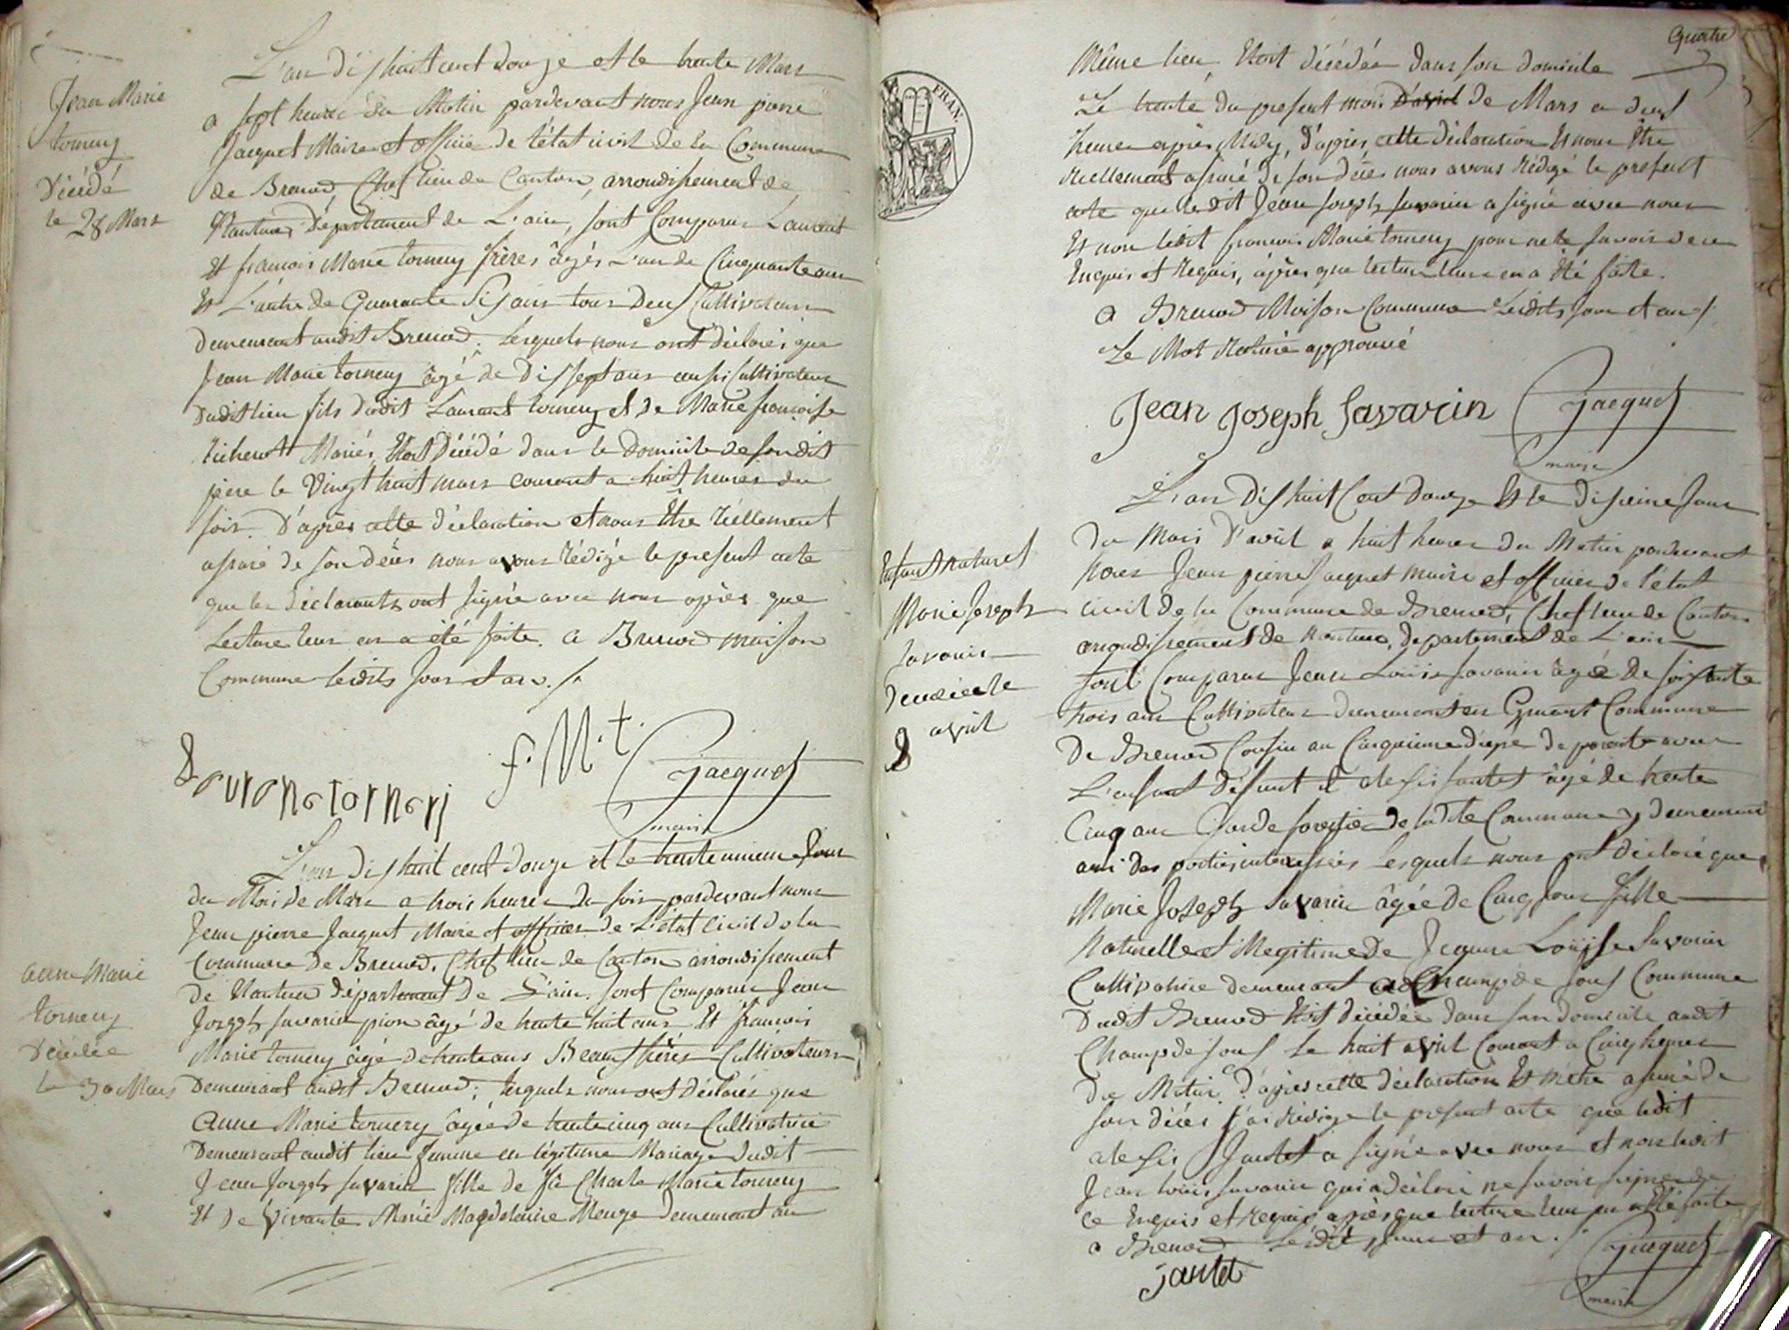 Jean Marie
tornery
Décédé
le 28 Mars
L'an dishuit cent douze et le trente Mars
a sept heures du Matin pardevant nous Jean pierre
Jacquet Maire et officier de l'état civil de la Commune
de Brenod Chef lieu de Canton, arrondissement de
Nantua, Département de L'ain, sont Comparus Laurent
Et françois Marie tornery frères âgés L'un de Cinquante ans
Et L'autre de Quarante Six ans tous deux Cultivateurs
demeurant audit Brenod. Lesquels nous ont déclaré que
Jean Marie tornery âgé de Dix sept ans aussi Cultivateur
dudit lieu fils dudit Laurent tornery et de Marie françoise
Mariés, Etoit Décédé dans le Domicile de sondit
père le Vingt huit mars courant a huit heures du
soir. D'après cette déclaration et nous Etre réellement
assuré de son décès nous avons rédigé le present acte
que les déclarants ont signé avec nous après que
Lecture leur en a été faite. a Brenod maison
Commune lesdits Jour et an ./.
f. M. t.
Jacquet
maire
anne Marie
tornery
Décédée
le 30 Mars
L'an dishuit cent douze et le trente unieme Jour
du Mois de Mars a trois heures du soir pardevant nous
Jean pierre Jacquet Maire et officier de L'état Civil de la
Commune de Brenod, Chef lieu de Canton arrondissement
de Nantua département de L'ain. sont Comparus Jean
Joseph savarin pion âgé de trente huit ans Et françois
Marie tornery âgé de trente ans Beaux frères Cultivateurs
Demeurant audit Brenod; lesquels nous ont déclaré que
Anne Marie tornery âgée de trente cinq ans Cultivatrice
Demeurant audit lieu femme en légitime Mariage dudit
Jean Joseph savarin fille de fû Charle Marie tornery
Et de vivante Marie Magdeleine Menge demeurant au
Quatre
Même lieu, Etoit décédée dans son domicile
Le trente du present mois D'avril de Mars a deux
heures après Midy, D'après cette déclaration Et nous Etre
réellement assuré de son décès nous avons rédigé le present
acte que ledit Jean Joseph savarin a signé avec nous
Et non ledit françois Marie tornery pour ne le savoir de ce
Enquis et requis, après que lecture leur en a Eté faite.
a Brenod Maison Commune Lesdits jour et an ./.
Le Mot raturé approuvé
Jean Joseph Savarin
Jacquet
maire
FRAN.
Enfant naturel
Marie Joseph
savarin
Décédée le
8 avril
L'an Dishuit Cent Douze Et le disieme Jour
du Mois D'avril a huit heures du Matin pardevant
Nous Jean pierre Jacquet maire et officier de l'état
civil de la Commune de Brenod, Chef lieu de Canton
arrondissement de Nantua, département de L'ain
sont Comparus Jean Louis savarin âgé de soixante
trois ans Cultivateur demeurant en Commune
De Brenod Cousin au Cinquieme degré de parenté avec
L'enfant défunt et alexis Jantet âgé de trente
Cinq ans Garde forestier de ladite Commune y demeurant
ami des parties interessées lesquels nous ont déclaré que
Marie Joseph savarin âgée de Cinq Jours fille
Naturelle et Illegitime de Jeanne Louise savarin
Cultivatrice demeurant au Champ de Jouf Commune
Dudit Brenod Etoit décédée dans son domicile audit
Champ de Jouf le huit avril Courant a Cinq heures
Du Matin. D'après cette déclaration Et m'etre assuré de
son décès J'ai rédigé le present acte que ledit
alexis Jantet a signé avec nous et non ledit
Jean louis savarin qui a déclaré ne savoir signer de
ce Enquis et requis après que lecture leur en a été faite
a Brenod Lesdits Jour et an ./.
Jacquet
maire
jantet